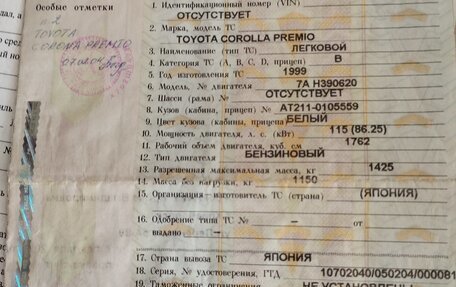 Особые отметки
п 2
TOYOTA
CORONA PREMIO
07.02.04
1. Идентификационный номер (VIN)
ОТСУТСТВУЕТ
2. Марка, модель ТС
TOYOTA COROLLA PREMIO
3. Наименование (тип ТС) ЛЕГКОВОЙ
4. Категория ТС (A, B, C, D, прицеп) B
5. Год изготовления ТС 1999
6. Модель, № двигателя 7A H390620
7. Шасси (рама) № ОТСУТСТВУЕТ
8. Кузов (кабина, прицеп) № AT211-0105559
9. Цвет кузова (кабины, прицепа) БЕЛЫЙ
10. Мощность двигателя, л. с. (кВт) 115 (86.25)
11. Рабочий объем двигателя, куб. см 1762
12. Тип двигателя БЕНЗИНОВЫЙ
13. Разрешенная максимальная масса, кг 1425
14. Масса без нагрузки, кг 1150
15. Организация—изготовитель ТС (страна) (ЯПОНИЯ)
16. Одобрение типа ТС № –
от –
17. Страна вывоза ТС ЯПОНИЯ
18. Серия, № удостоверения, ГТД 10702040/050204/000081
19. Таможенные ограничения НЕ УСТАНОВЛЕНЫ